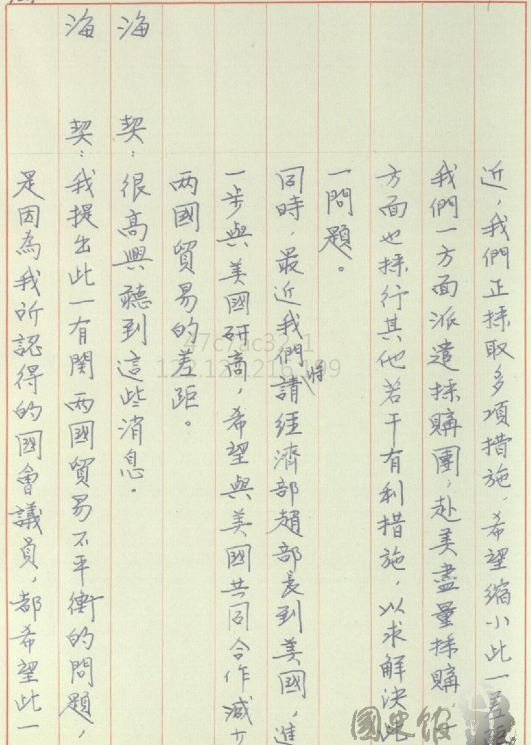 近，我們正採取多項措施，希望縮小此一差距
我們一方面派遣採購團，赴美盡量採購，一
方面也採行其他若干有利措施，以求解決此
一問題。
同時，最近我們將請經濟部趙部長到美國，進
一步與美國研商，希望與美國共同合作減少
兩國貿易的差距。
海 契：很高興聽到這些消息。
海 契：我提出此一有關兩國貿易不平衡的問題，
是因為我所認得的國會議員，都希望此一
國史館